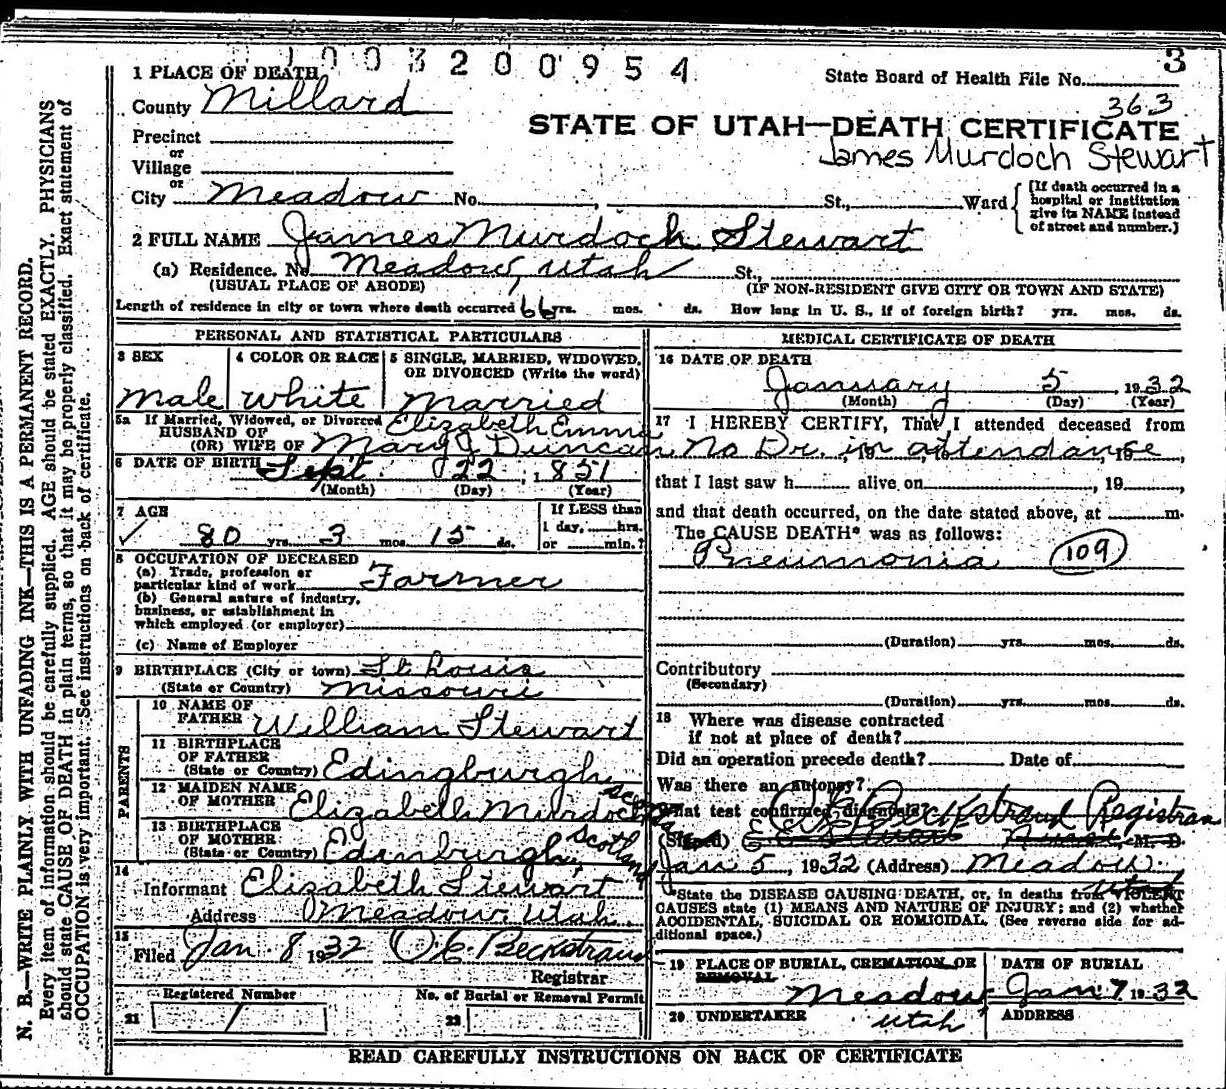 1003200954
3
1 PLACE OF DEATH
State Board of Health File No.
County Millard
363
Precinct
STATE OF UTAH—DEATH CERTIFICATE
or
James Murdoch Stewart
Village
or
City Meadow No. , St., Ward
[If death occurred in a
hospital or institution
give its NAME instead
of street and number.]
2 FULL NAME James Murdoch Stewart
(a) Residence. No. Meadow, Utah St.,
(USUAL PLACE OF ABODE) (IF NON-RESIDENT GIVE CITY OR TOWN AND STATE)
Length of residence in city or town where death occurred 66 yrs. mos. ds. How long in U. S., if of foreign birth? yrs. mos. ds.
PERSONAL AND STATISTICAL PARTICULARS
3 SEX
Male
4 COLOR OR RACE
White
5 SINGLE, MARRIED, WIDOWED,
OR DIVORCED (Write the word)
Married
5a If Married, Widowed, or Divorced Elizabeth Emma
HUSBAND OF
(OR) WIFE OF Mary J Duncan
6 DATE OF BIRTH Sept. 22, 1851
(Month) (Day) (Year)
7 AGE
✓ 80 yrs. 3 mos. 15 ds.
If LESS than
1 day, hrs.
or min.?
8 OCCUPATION OF DECEASED
(a) Trade, profession or
particular kind of work Farmer
(b) General nature of industry,
business, or establishment in
which employed (or employer)
(c) Name of Employer
9 BIRTHPLACE (City or town) St Louis
(State or Country) Missouri
PARENTS
10 NAME OF
FATHER William Stewart
11 BIRTHPLACE
OF FATHER
(State or Country) Edingburgh
12 MAIDEN NAME
OF MOTHER Elizabeth Murdoch
13 BIRTHPLACE
OF MOTHER
(State or Country) Edinburgh, Scotland
14
Informant Elizabeth Stewart
Address Meadow Utah.
15
Filed Jan 8 1932 O C Beckstrand
Registrar
Registered Number
21 1
No. of Burial or Removal Permit
22
MEDICAL CERTIFICATE OF DEATH
16 DATE OF DEATH
January 5 1932
(Month) (Day) (Year)
17 I HEREBY CERTIFY, That I attended deceased from
No Dr. in attendance
that I last saw h alive on , 19 ,
and that death occurred, on the date stated above, at m.
The CAUSE DEATH* was as follows:
Pneumonia 109
(Duration) yrs. mos. ds.
Contributory
(Secondary)
(Duration) yrs. mos. ds.
18 Where was disease contracted
if not at place of death?
Did an operation precede death? Date of
Was there an autopsy?
What test confirmed diagnosis?
Beckstrand Registrar
(Signed) M. D.
Jan 5, 1932 (Address) Meadow
Utah
*State the DISEASE CAUSING DEATH, or, in deaths from VIOLENT
CAUSES state (1) MEANS AND NATURE OF INJURY; and (2) whether
ACCIDENTAL, SUICIDAL OR HOMICIDAL. (See reverse side for ad-
ditional space.)
19 PLACE OF BURIAL, CREMATION OR
REMOVAL
Meadow
Utah
DATE OF BURIAL
Jan 7 1932
20 UNDERTAKER
ADDRESS
READ CAREFULLY INSTRUCTIONS ON BACK OF CERTIFICATE
N. B.—WRITE PLAINLY WITH UNFADING INK—THIS IS A PERMANENT RECORD.
Every item of information should be carefully supplied. AGE should be stated EXACTLY. PHYSICIANS
should state CAUSE OF DEATH in plain terms, so that it may be properly classified. Exact statement of
OCCUPATION is very important. See instructions on back of certificate.